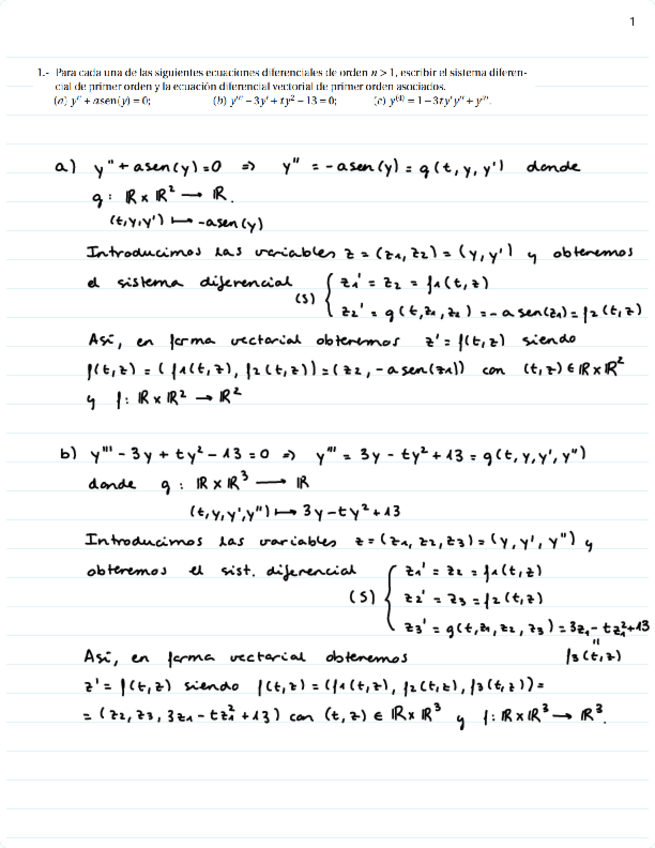 1
1.- Para cada una de las siguientes ecuaciones diferenciales de orden n > 1, escribir el sistema diferen-
cial de primer orden y la ecuación diferencial vectorial de primer orden asociados.
(a) y'' + asen(y) = 0; (b) y''' − 3y' + ty² − 13 = 0; (c) y⁽⁴⁾ = 1 − 3ty'y'' + y'''.
a) y'' + asen(y) = 0 ⇒ y'' = -asen(y) = g(t, y, y') donde
g: ℝ x ℝ² → ℝ.
(t,y,y') ↦ -asen(y)
Introducimos las variables z = (z1, z2) = (y, y') y obtenemos
el sistema diferencial (S) { z1' = z2 = f1(t, z)
z2' = g(t, z1, z2) = -a sen(z1) = f2(t, z)
Así, en forma vectorial obtenemos z' = f(t, z) siendo
f(t, z) = (f1(t, z), f2(t, z)) = (z2, -a sen(z1)) con (t, z) ∈ ℝ x ℝ²
y f: ℝ x ℝ² → ℝ²
b) y''' - 3y + ty² - 13 = 0 ⇒ y''' = 3y - ty² + 13 = g(t, y, y', y'')
donde g: ℝ x ℝ³ → ℝ
(t, y, y', y'') ↦ 3y - ty² + 13
Introducimos las variables z = (z1, z2, z3) = (y, y', y'') y
obtenemos el sist. diferencial { z1' = z2 = f1(t, z)
(S) z2' = z3 = f2(t, z)
z3' = g(t, z1, z2, z3) = 3z1 - tz1² + 13
"
Así, en forma vectorial obtenemos f3(t, z)
z' = f(t, z) siendo f(t, z) = (f1(t, z), f2(t, z), f3(t, z)) =
= (z2, z3, 3z1 - tz1² + 13) con (t, z) ∈ ℝ x ℝ³ y f: ℝ x ℝ³ → ℝ³.